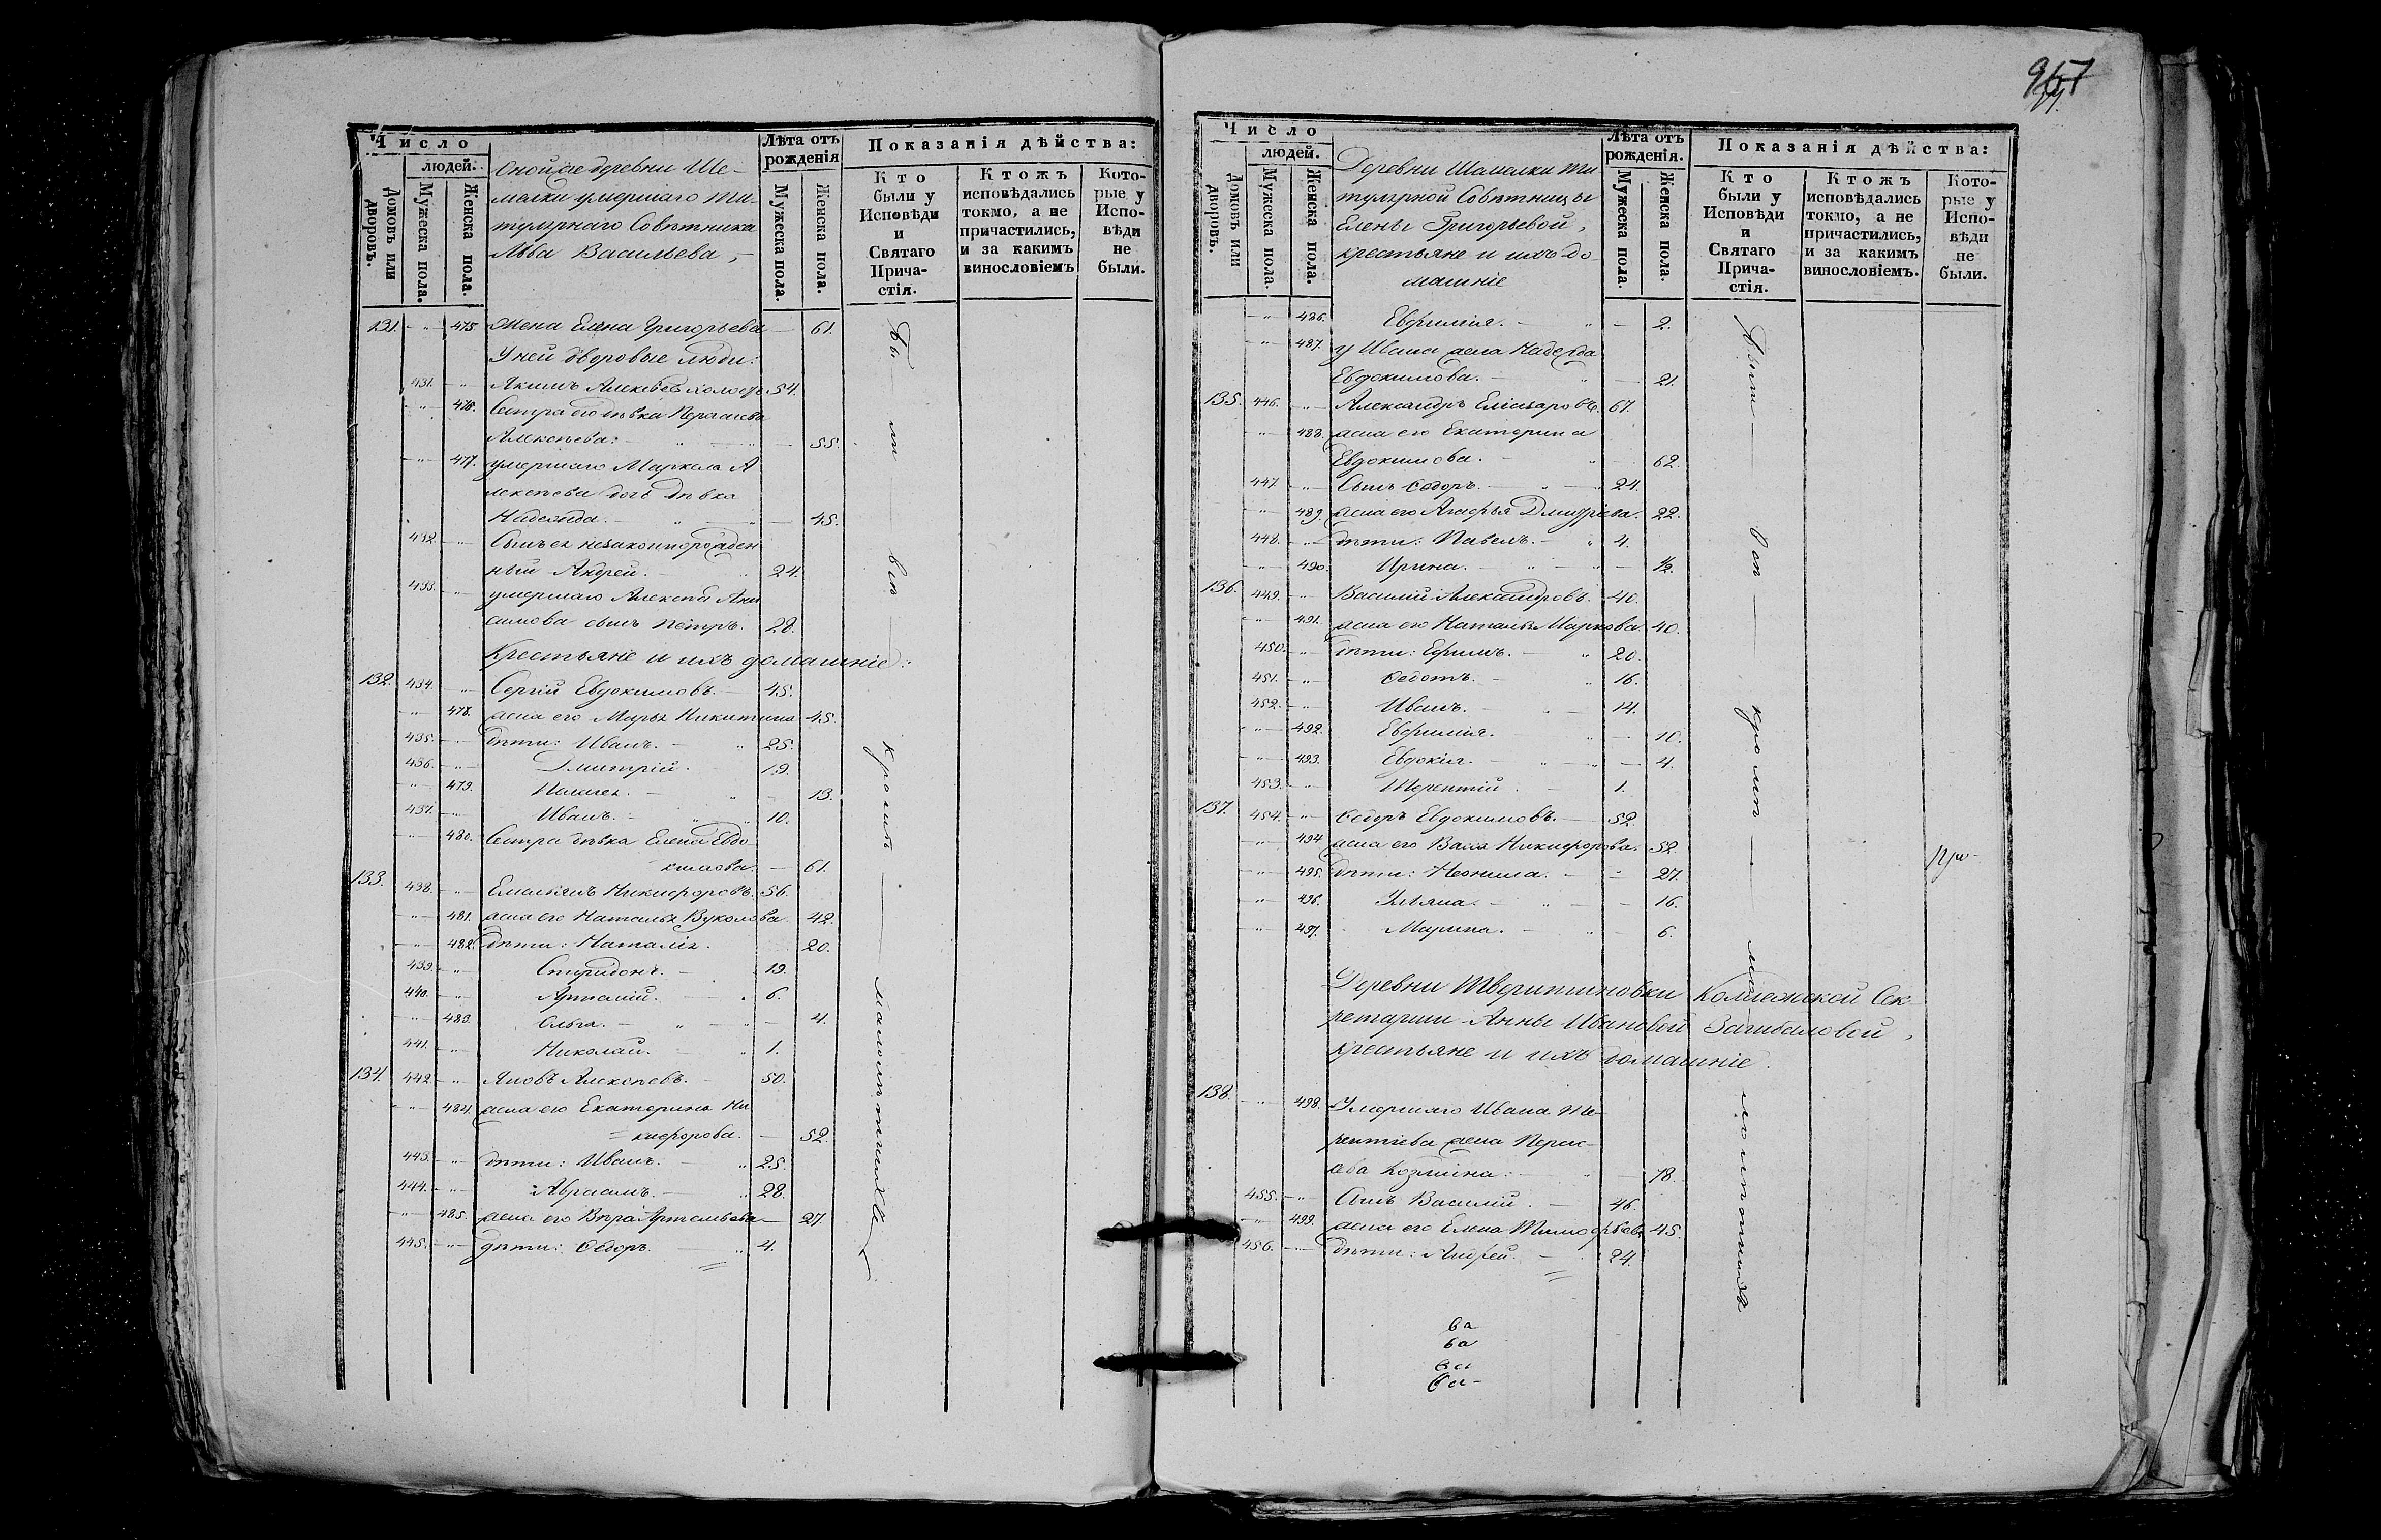 Число
людей.
Домовъ или дворовъ.
Мужеска пола.
Женска пола.
Оной же деревни Ше-
малки умершаго Ти-
тулярнаго Совѣтника
Льва Васильева,
Лѣта отъ рожденія
Мужеска пола.
Женска пола.
Показанія дѣйства:
Кто были у Исповѣди и Святаго Прича-стія.
Ктожъ исповѣдались токмо, а не причастились, и за какимъ винословіемъ
Кото-рые у Испо-вѣди не были.
131. - „ - 475. Жена Елена Григорьева — 61.
У ней дворовые люди:
431. - „ - Якимъ Алексѣевъ холостъ 54.
- „ - 476. Сестра его дѣвка
Алексѣева: - „ - 55.
- „ - 477. умершаго Маркела А
лексѣева дочь дѣвка
Надежда. - „ - 45.
432. - „ - Сынъ ея незаконнорожден
ный Андрей. - „ 24.
433. - „ - умершаго Алексѣя Ани
симова сынъ Петръ. 28.
Крестьяне и ихъ домашніе:
132. 434. - „ - Сергій Евдокимовъ. - 45.
- „ - 478. жена его Марья Никитина 45.
435. - „ - дѣти: Иванъ. - „ 25.
436. - „ - Димитрій. 19.
- „ - 479. Пелагея. - „ - 13.
437. - „ - Иванъ. - „ 10.
- „ - 480. Сестра дѣвка Елена Евдо
кимова. - 61.
133. 438. - „ - Емельянъ Никифоровъ. 56.
- „ - 481. жена его Наталья Вуколова. 42.
- „ - 482. дѣти: Наталія. 20.
439. - „ - Спиридонъ. - 19.
440. - „ - Артемій. - „ 6.
- „ - 483. Ольга. - „ - 4.
441. - „ - Николай. - „ 1.
134. 442 - „ - Яковъ Алексѣевъ. - 50.
- „ - 484. жена его Екатерина Ни
= кифорова. - 52.
443. - „ - дѣти: Иванъ. - „ 25.
444. - „ - Авраамъ. - „ 28.
- „ - 485. жена его Вѣра Артемьева - 27.
445. - „ - дѣти: Ѳедоръ. - „ 4.
Бы — ли — всѣ — кромѣ — малолѣтнихъ
957
Число
людей.
Домовъ или дворовъ.
Мужеска пола.
Женска пола.
Деревни Шемалки Ти
тулярной Совѣтницы
Елены Григорьевой,
крестьяне и ихъ до-
машніе
Лѣта отъ рожденія.
Мужеска пола.
Женска пола.
Показанія дѣйства:
Кто были у Исповѣди и Святаго Прича-стія.
Ктожъ исповѣдались токмо, а не причастились, и за какимъ винословіемъ.
Кото-рые у Испо-вѣди не были.
- „ - 486. Евфимія. - „ - 2.
- „ - 487. у Ивана жена Надежда
Евдокимова. - „ - 21.
135. 446. - „ - Александръ Елизаровъ. 67.
- „ - 488. жена его Екатерина
Евдокимова. - „ - 62.
447. - „ - Сынъ Ѳедоръ. - „ - 24.
- „ - 489. жена его Агафья Дмитріева. 22.
448. - „ - дѣти: Павелъ. - „ 4.
- „ - 490. Ирина. - „ - 1/2.
136. 449. - „ - Василій Александровъ. 40.
- „ - 491. жена его Наталья Маркова. 40.
450. - „ - дѣти: Ефимъ. - „ 20.
451. - „ - Ѳедотъ. - „ 16.
452. - „ - Иванъ. - „ 14.
- „ - 492. Евфимія. - „ - 10.
- „ - 493. Евдокія. - „ - 4.
453. - „ - Терентій. - 1.
137. 454. - „ - Ѳедоръ Евдокимовъ. - 52.
- „ - 494 жена его Васса Никифорова. 52
- „ - 495. дѣти: Неонила. - „ 27.
- „ - 496. Ульяна. - „ - 16.
- „ - 497. Марина. - „ - 6.
Деревни Тверитиновки Коллежской Сек
ретарши Анны Ивановой Загибаловой,
крестьяне и ихъ домашніе.
138. - „ - 498. Умершаго Ивана Те-
рентіева жена
Козмина: - 78.
455. - „ - Сынъ Василій. - 46.
- „ - 499. жена его Елена Тимофѣева 45.
456. - „ - дѣти: Андрей. - 24.
всѣ — кромѣ — малолѣтнихъ
ва
ва
ва
ва-